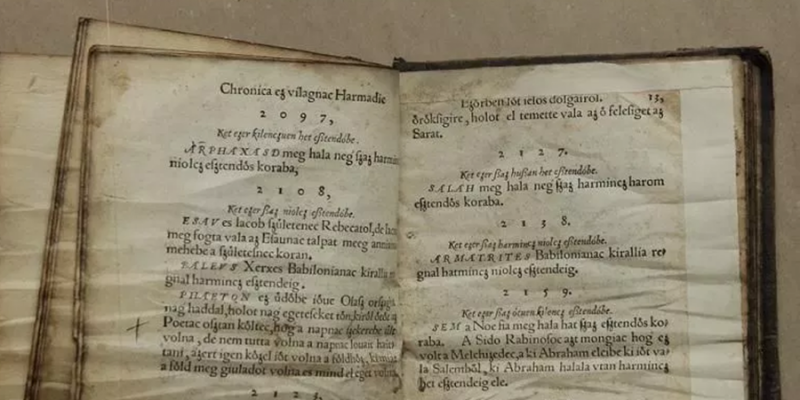 Chronica eȝ vilagnac Harmadic
2 0 9 7,
Ket eȝer kilencʒuen het eſztendôbe.
ARPHAXASD meg hala neg ſzaȝ harmin
niolcʒ eſztendôs koraba,
2 1 0 8,
Ket eȝer ſzaȝ niolcʒ eſztendôbe.
ESAV es Iacob ſzületenec Rebecatol, de
meg fogta vala aȝ Eſaunac talpat meeg
mehebe a ſzületeſnec koran.
PALEVS Xerxes Babilonianac kirallia
gnal harmincʒ eſztendeig.
PHAETON eȝ üdôbe iôue Olaſz orſzag
nag haddal, holot nag egeteſeket
Poetac oſztan kôltec, hog a napnac
volna, de nem tutta volna a napnac louait
tani, aȝert igen kôȝel iôt volna a fôldhôȝ,
a fôld meg giuladot volna es mind el eget volna,
2 1 2 5,
Eȝôrben lôt ielos dolgairol. 13,
ôrôkſigire, holot el temette vala aȝ ô feleſiget aȝ
Sarat.
2 1 2 7.
Ket eȝer ſzaȝ huſzan het eſztendôbe.
SALAH meg hala neg ſzaȝ harmincʒ harom
eſztendôs koraba.
2 1 3 8.
Ket eȝer ſzaȝ harmincʒ niolcʒ eſztendôbe.
ARMATRITES Babilonianac kirallia re,
gnal harmincʒ niolcʒ eſztendeig.
2 1 5 9.
Ket eȝer ſzaȝ ôtuen kilencʒ eſztendôbe.
SEM a Noe fia meg hala hat ſzaȝ eſztendôs ko,
raba. A Sido Rabinoſoc aȝt mongiac hog eȝ
volt a Melchiſedec, a ki Abraham eleibe ki iôt va,
la Salembôl, ki Abraham halala vtan harmincʒ
het eſztendeig ele.